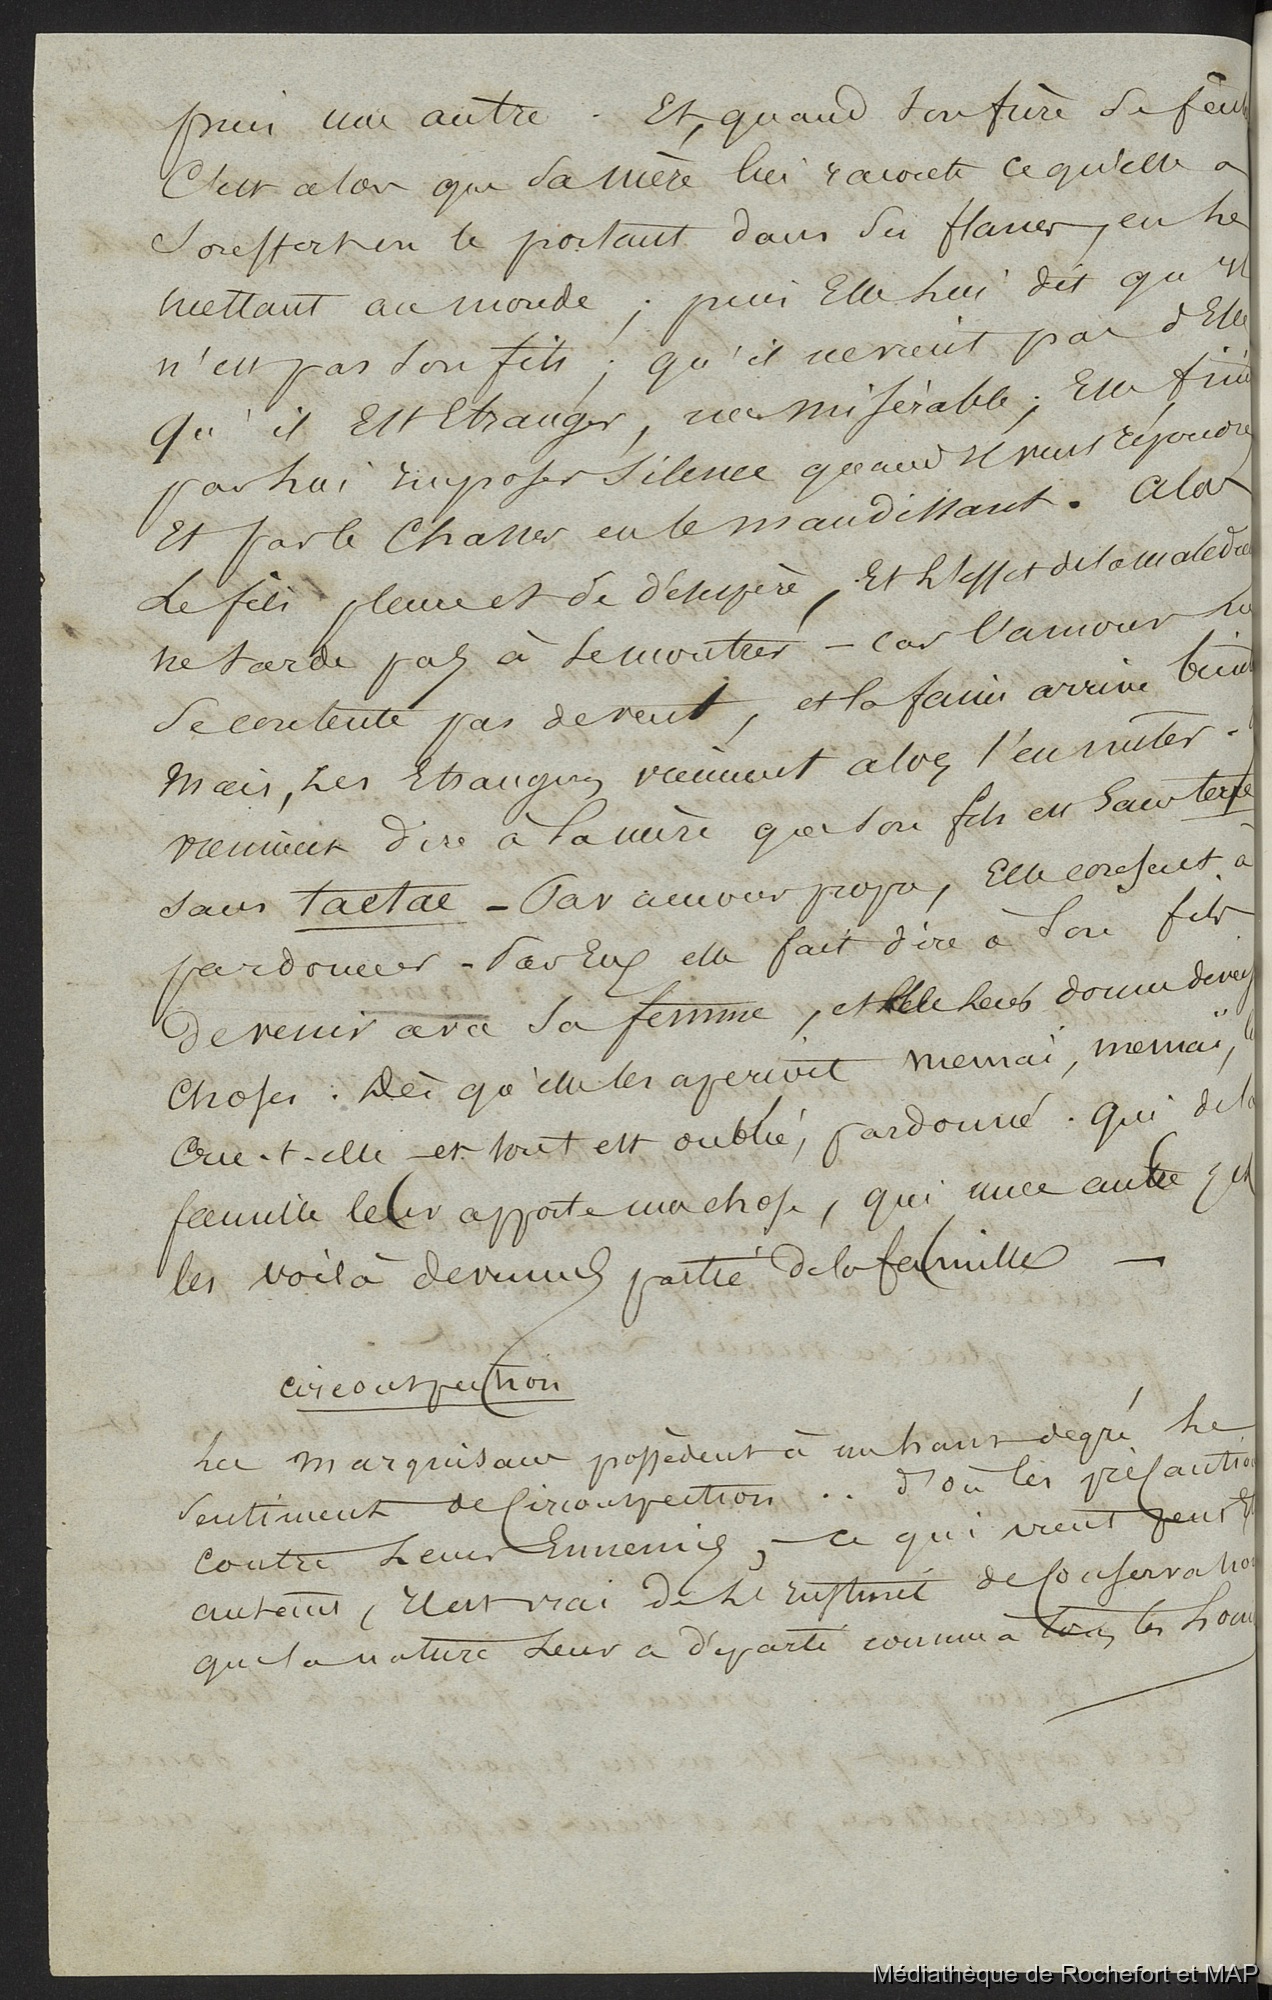 puis une autre. Et, quand son frère se
C'est alors que sa mère lui raconte ce qu'elle a
souffert en le portant dans ses flancs, en le
mettant au monde ; puis Elle lui dit qu'il
n'est pas son fils ; qu'il ne vient pas d'Elle
qu'il Est Etranger, un misérable ; Elle finit
par lui imposer silence quand il veut répondre
Et par le Chasser en le maudissant. Alors
Le fils pleure et se désespère, Et l'effet de la malédic
ne tarde pas à se montrer – car l'amour ne
se contente pas de vent, et la faim arrive bient
Mais, Les Etrangers viennent alors
viennent dire à la mère que son fils est sans terre
sans tactac – Par amour propre, Elle consent à
pardonner – Par Eux elle fait dire à son fils
de venir avec sa femme, et Elle leur donne divers
choses. Dès qu'elle les aperçoit memaï, memaï,
Crie-t-elle – et tout est oublié, pardonné. qui de la
famille leur apporte une chose, qui une autre, et
les voilà devenus partie de la famille –
circonspection
Les Marquisans possèdent à un haut degré le
sentiment de Circonspection .. d'où les précaution
contre Leurs Ennemis, – ce qui vient peut Et
autant, il est vrai de L'instinct de Conservation
que la nature Leur a départi comme à tous les hom
Médiathèque de Rochefort et MAP